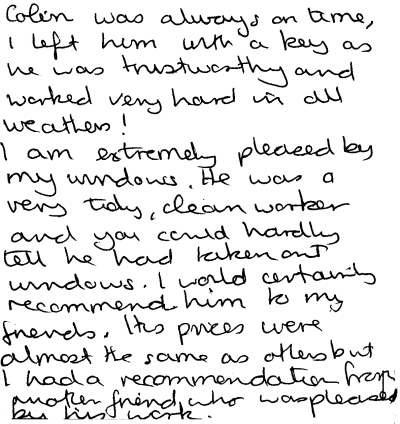 Colin was always on time,
I left him with a key as
he was trustworthy and
worked very hard in all
weathers!
I am extremely pleased by
my windows. He was a
very tidy, clean worker
and you could hardly
tell he had taken out
windows. I would certainly
recommend him to my
friends. His prices were
almost the same as others but
I had a recommendation from
another friend who was pleased
by his work.